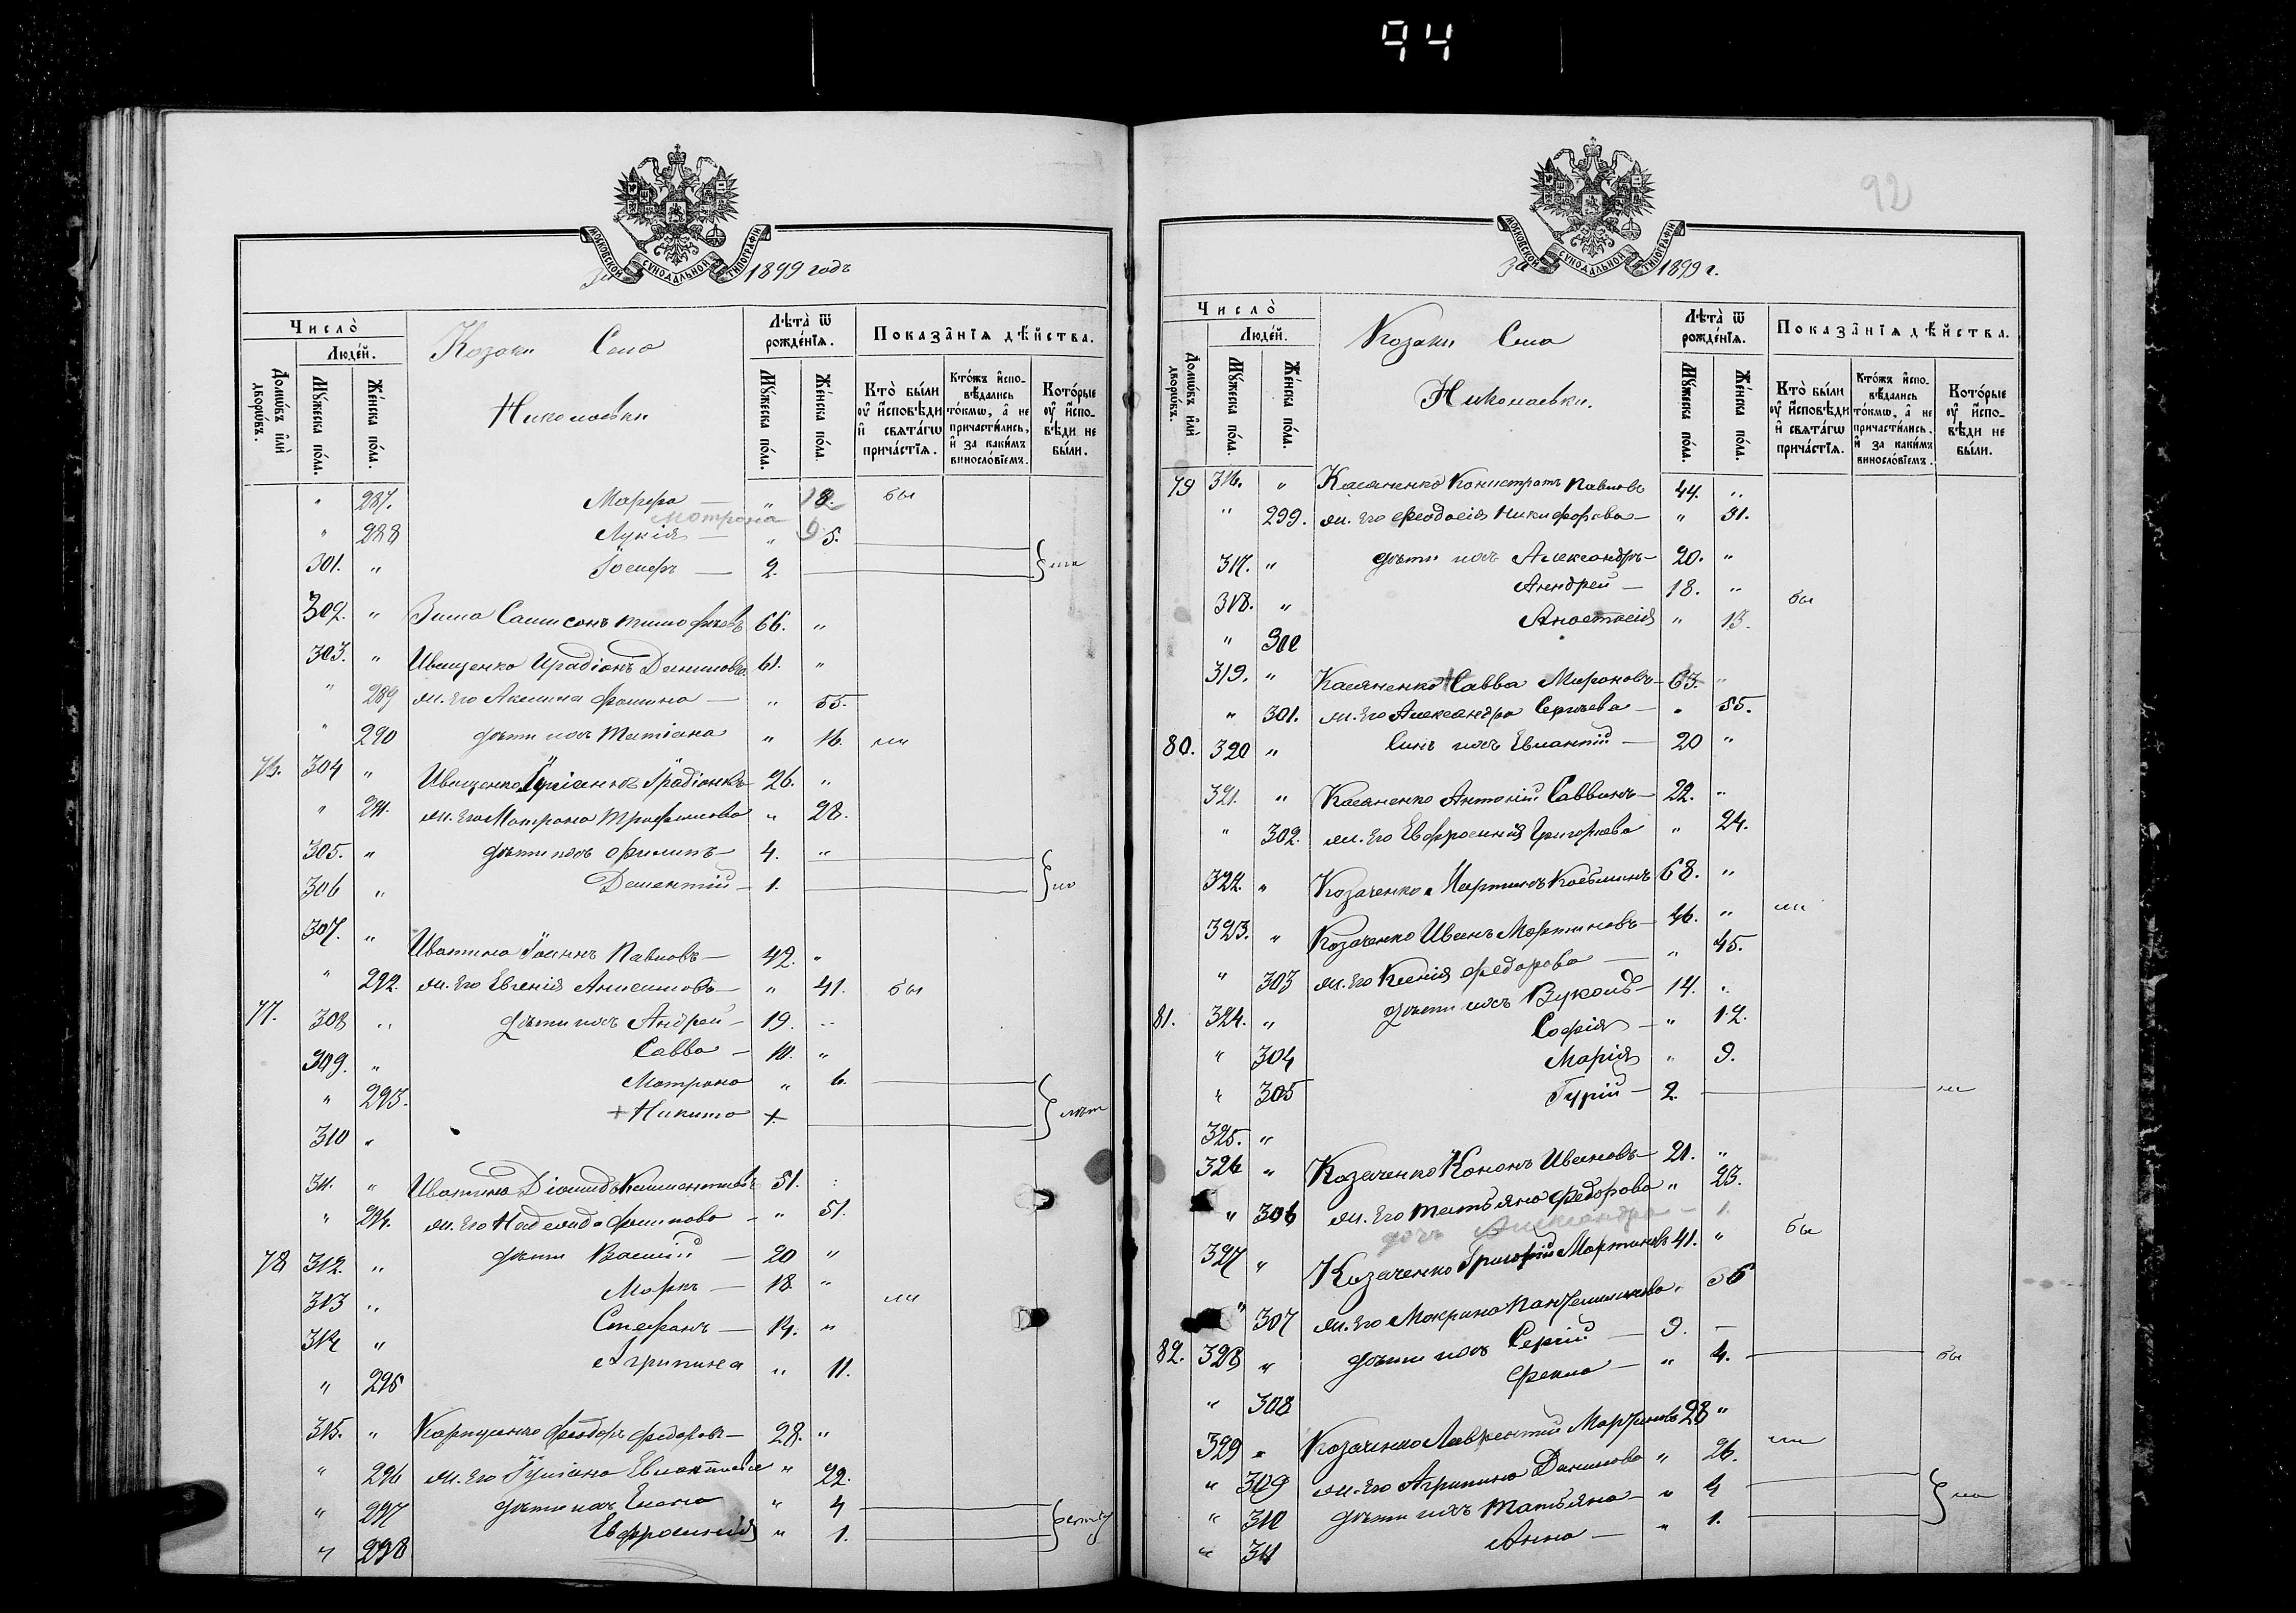 94
МОСКОВСКОЙ СѴНОДАЛЬНОЙ ТИПОГРАФІИ
За 1899 годъ
Число̀
Людей.
Домѡвъ и҆лѝ дворѡвъ.
Мꙋжеска пола.
Женска пола.
Козаки Села
Николаевки
Лѣта̀ ѿ рожденїѧ.
Мꙋжеска пола.
Женска пола.
Показанїѧ дѣйства.
Кто̀ были оу҆ и҆сповѣди и҆ свѧтагѡ причастїѧ.
Ктожъ и҆сповѣдались токмѡ, а҆ не причастились, и҆ за какимъ винословїемъ.
Которые оу҆ и҆сповѣди не были.
" 287. Марѳа — " 18. бы
Мотрона
" 288 Лукія — " 5.
301. " Іосифъ — 2.
302. " Зима Сампсонъ Тимофѣевъ 66. "
303. " Иващенко Иродіонъ Даниловъ 61. "
" 289 ж. его Акилина Фомина — " 55.
" 290 дѣти ихъ Татіана " 16. ли
76. 304 " Иващенко Іуліанъ Іродіоновъ 26. "
" 291. ж. его Мотрона Трофимова " 28.
305. " дѣти ихъ Филипъ — 4. "
306 " Дементій — 1.
307. " Иватина Іоаннъ Павловъ — 42. "
" 292. ж. его Евгенія Анисимова — " 41. бы
77. 308 " дѣти ихъ Андрей — 19. "
309. " Савва — 10. "
" 293. Мотрона " 6.
310 " + Никита +
311. " Иватина Діомидъ Климентіевъ 51. "
" 294. ж. его Надежда Филипова — " 51.
78 312. " дѣти Василій — 20 "
313 " Маркъ — 18. "
ли
314 " Стефанъ — 14. "
" 295 Агрипина " 11.
315. " Карпусенко Феодоръ Федоровъ — 28. "
" 296 ж. его Іуліана Евлампіева " 22.
" 297 дѣти ихъ Елена " 4
" 298 Евфросинія " 1.
92
МОСКОВСКОЙ СѴНОДАЛЬНОЙ ТИПОГРАФІИ
За 1899 г.
Число̀
Людей.
Домѡвъ и҆лѝ дворѡвъ.
Мꙋжеска пола.
Женска пола.
Козаки Села
Николаевки.
Лѣта̀ ѿ рожденїѧ.
Мꙋжеска пола.
Женска пола.
Показанїѧ дѣйства.
Кто̀ были оу҆ и҆сповѣди и҆ свѧтагѡ причастїѧ.
Ктожъ и҆сповѣдались токмѡ, а҆ не причастились, и҆ за какимъ винословїемъ.
Которые оу҆ и҆сповѣди не были.
79 316. " Касяненко Калистратъ Павловъ 44. "
" 299. ж. его Феодосія Никифорова — " 31.
317. " дѣти ихъ Александръ — 20. "
318. " Андрей — 18. "
бы
" 300 Анастасія " 13.
319. " Касяненко Савва Мироновъ — 63. "
" 301. ж. его Александра Сергѣева — " 55.
80. 320 " Сынъ ихъ Евлампій — 20 "
321. " Касяненко Антоній Саввинъ — 22. "
" 302. ж. его Евфросинія Григорьева " 24.
322. " Козаченко Мартинъ Косьминъ 68. "
323. " Козаченко Иванъ Мартиновъ — 46. " ли
" 303 ж. его Ксенія Федорова — " 45.
81. 324. " дѣти ихъ Вуколъ — 14. "
" 304 Софія — " 12.
" 305 Марія " 9.
325. " Гурій — 2. ли
326 " Козаченко Кононъ Ивановъ — 21. "
" 306 ж. его Татьяна Федорова " 23.
дочь Александра — 1.
327 " Козаченко Григорій Мартиновъ 41. " бы
" 307 ж. его Макрина Пантелимонова " 36
82. 328 " дѣти ихъ Сергій — 9. —
" 308 Фекла — " 4. бы
329 " Козаченко Лаврентій Мартиновъ 28 "
" 309 ж. его Агрипина Данилова " 26. ли
" 310 дѣти ихъ Татьяна — " 4
" 311 Анна — " 1.